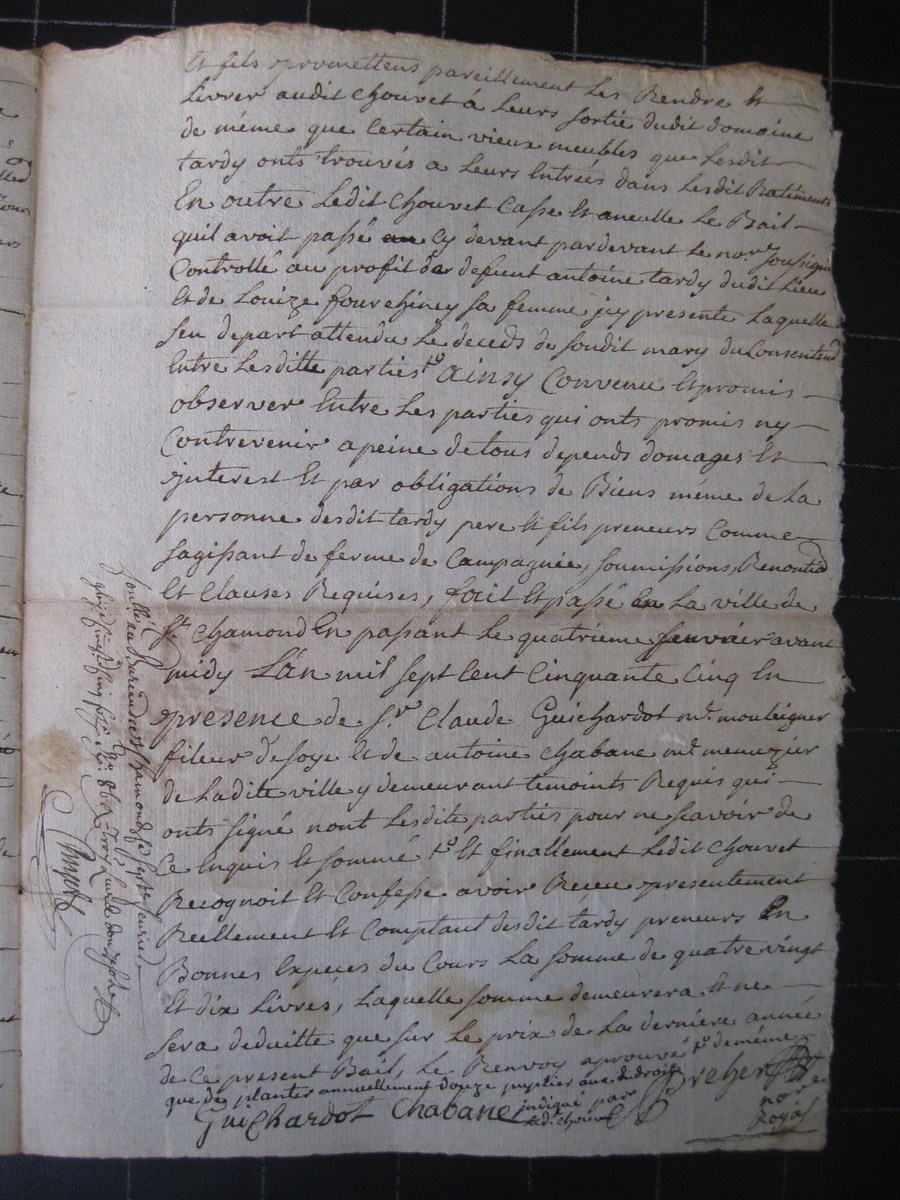 Et fils promettens pareillement Les Rendre Et
Livrer audit chouvet á Leurs sortie dudit domaine
de même que Certain vieux meubles que Lesdit
tardy onts trouvés a Leurs Entrées dans Lesdit Batiments
En outre Ledit Chouvet Casse Et anculle Le Bail
quil avoit passé Cy devant pardevant Le no.re soussigné
Controllé au profit de deffunt antoine tardy dudit Lieu
Et de Louize fourchiney sa femme jcy presente Laquelle
sen depart attendu Le deceds de soudit mary du Consentend
Entre Lesditte parties to Ainsy Convenu Et promis
observer Entre Les parties qui onts promis ny
Contrevenir a peine de tous depends domages Et
jnterest Et par obligations de Biens même de La
personne desdit tardy pere Et fils preneurs Comme
sagissant de ferme de Campagnée, soumissions, Renontia
Et Clauses Requises, fait Et passé En La ville de
St. Chamond En passant Le quatriéme feuvrier avant
midy Lán mil sept Cent Cinquante Cinq En
presence de Sr. Claude Guichardot md. mouleigner
fileur de soye Et de antoine Chabane md. menuzier
de Ladite ville y demeurant temoints Requis qui
onts signé nont Lesdite parties pour ne scavoir de
Ce Enquis Et sommé to Et finallement Ledit Chouvet
Recognoit Et Confesse avoir Receu presentement
Reellement Et Comptant desdit tardy preneurs En
Bonnes Especes du Cours La somme de quatre vingt
Et dix Livres, Laquelle somme demeurera Et ne
sera deduitte que sur Le prix de La derniere année
de Ce present Bail, Le Renvoy aprouvé to de méme
que de planter annuellement douze aux droits
jndiqué par
Led. chouvet
Guichardot Chabane
no.re
Royal
au Bureau de St Chamond